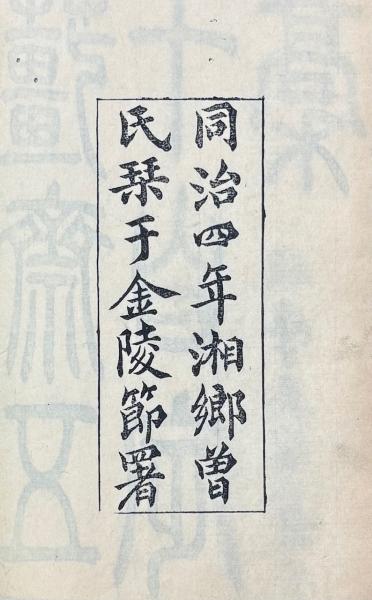 同治四年湘鄉曾
氏琹于金陵節署